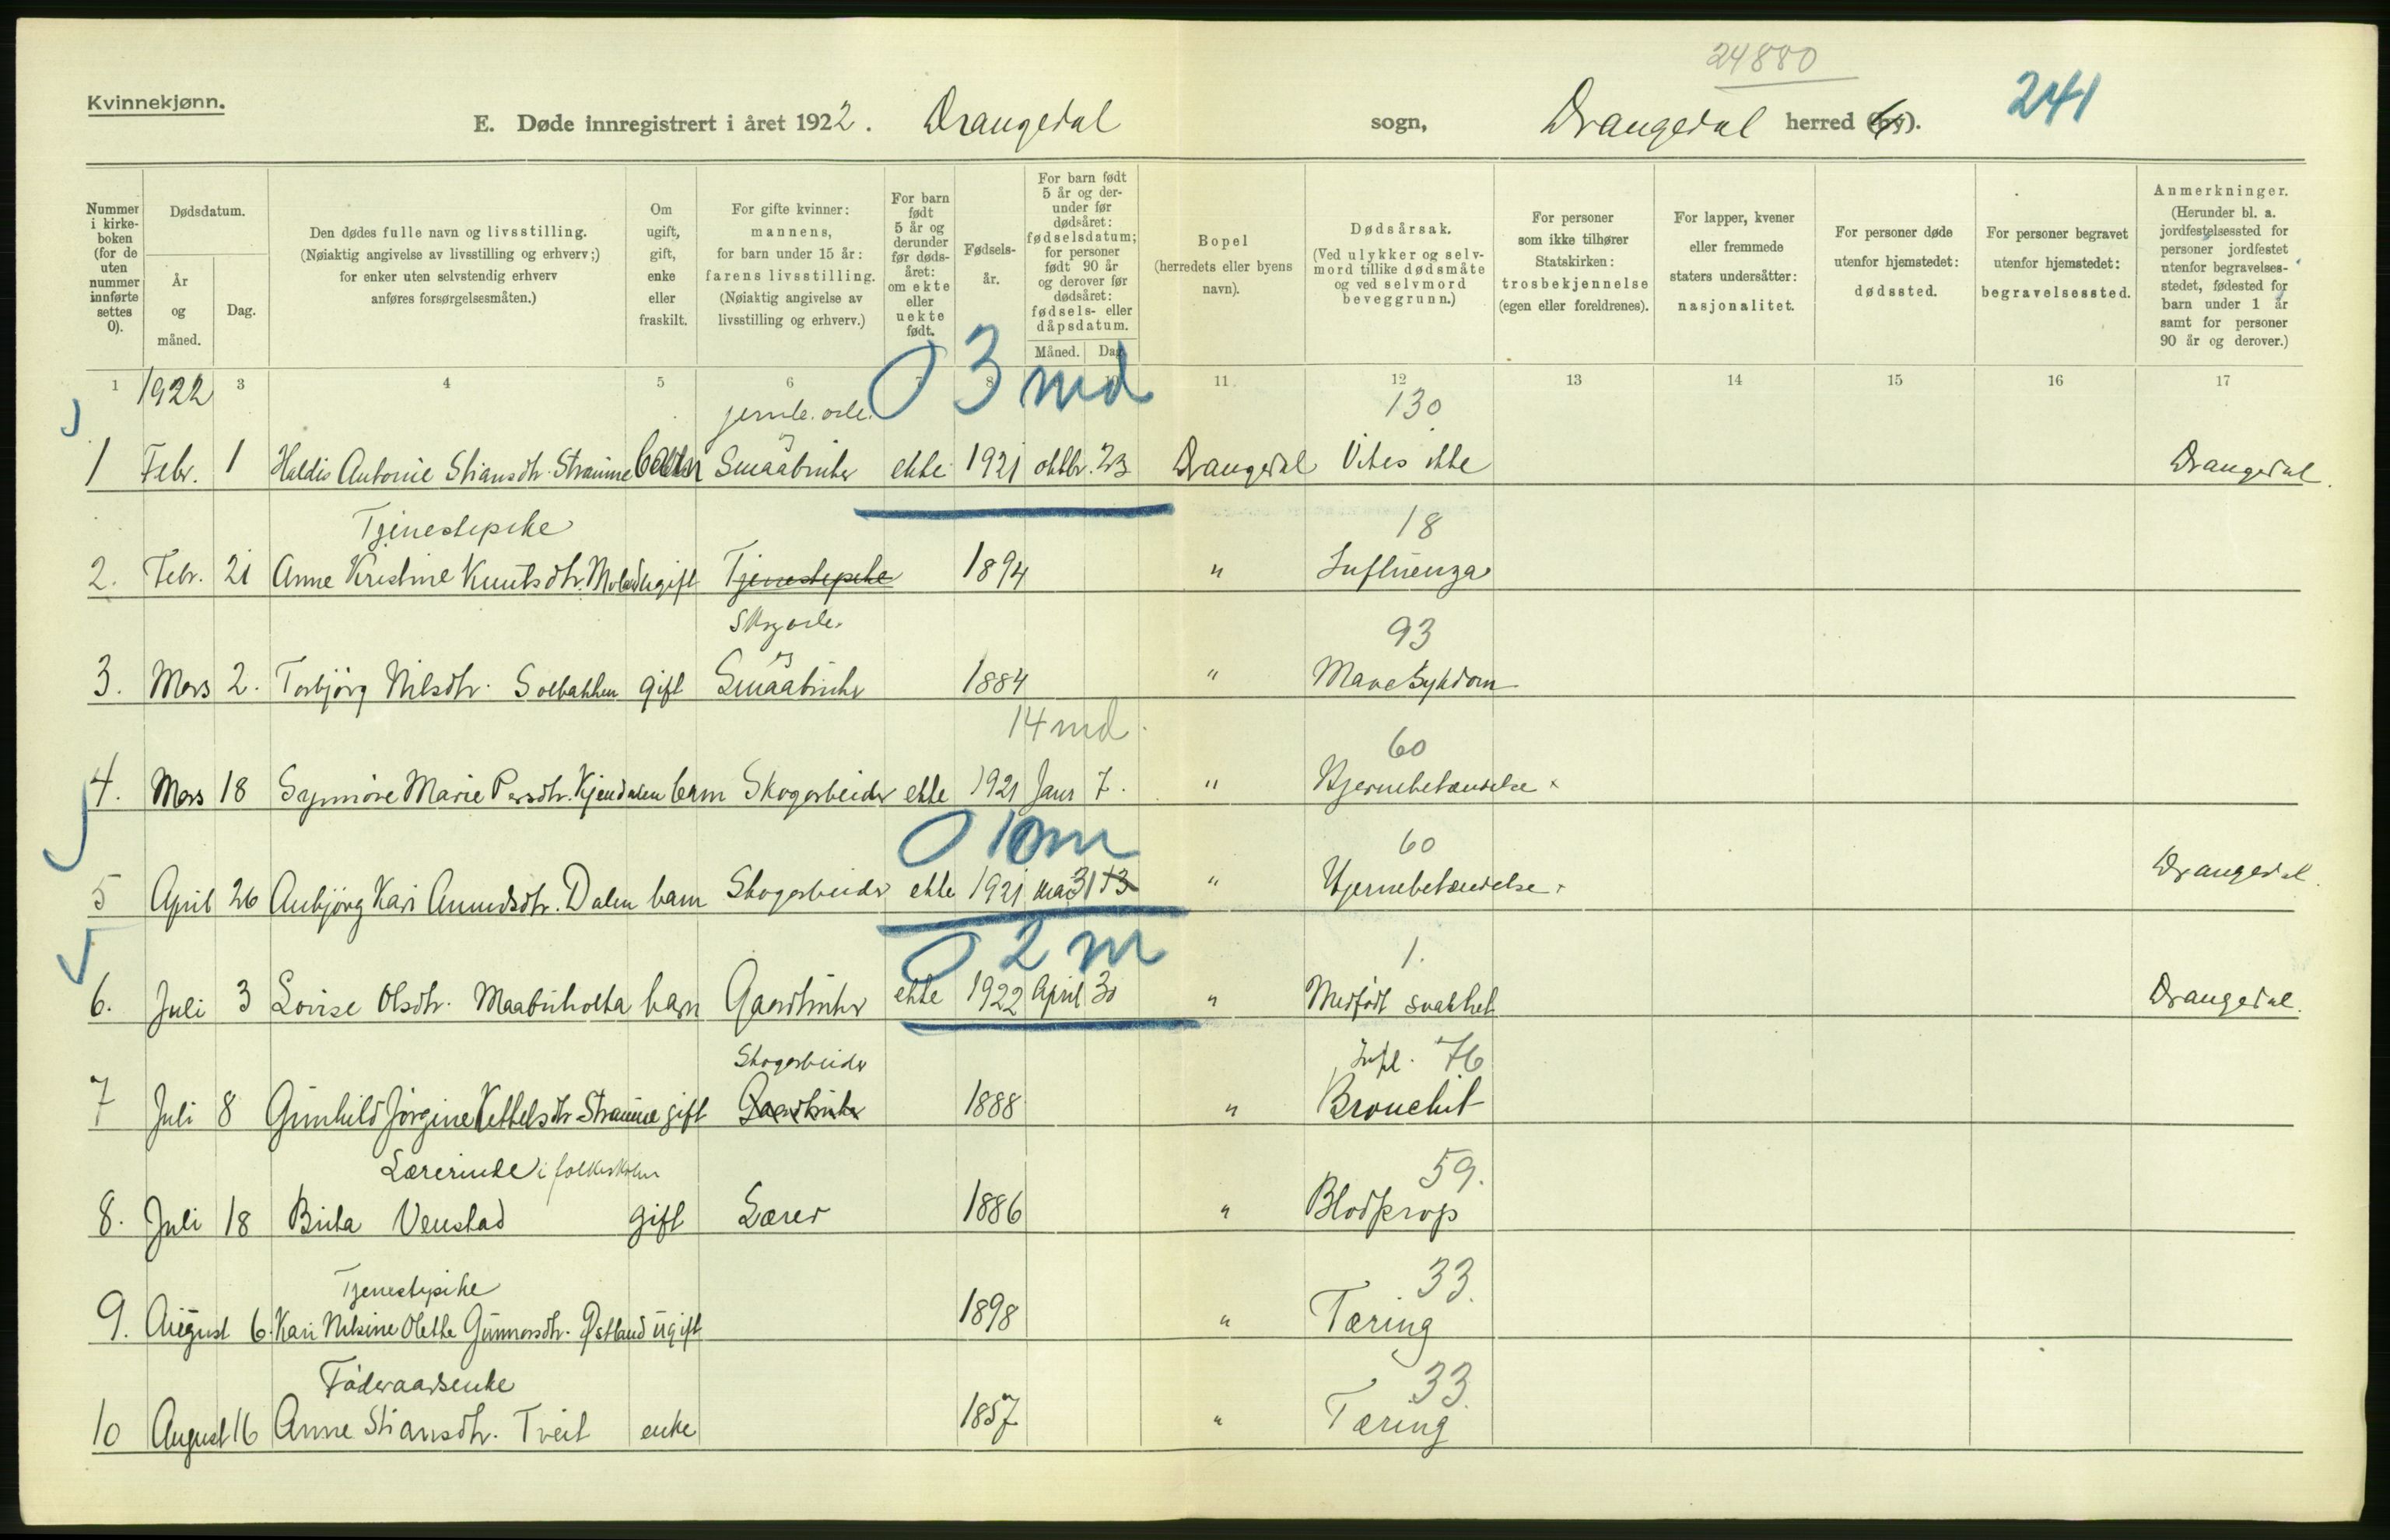 24880
241
Kvinnekjønn.
E. Døde innregistrert i året 1922. Drangedal sogn, Drangedal herred (by).
Nummer i kirke-boken (for de uten nummer innførte settes 0).
Dødsdatum.
År og måned.
Dag.
Den dødes fulle navn og livsstilling.
(Nøiaktig angivelse av livsstilling og erhverv;)
for enker uten selvstendig erhverv
anføres forsørgelsesmåten.)
Om ugift, gift, enke eller fraskilt.
For gifte kvinner: mannens, for barn under 15 år: farens livsstilling. (Nøiaktig angivelse av livsstilling og erhverv.)
For barn født 5 år og derunder før døds-året: om ekte eller uekte født.
Fødsels-år.
For barn født 5 år og der-under før dødsåret: fødselsdatum; for personer født 90 år og derover før dødsåret: fødsels- eller dåpsdatum.
Måned. Dag.
Bopel (herredets eller byens navn).
Dødsårsak. (Ved ulykker og selv-mord tillike dødsmåte og ved selvmord beveggrunn.)
For personer som ikke tilhører Statskirken: trosbekjennelse (egen eller foreldrenes).
For lapper, kvener eller fremmede staters undersåtter: nasjonalitet.
For personer døde utenfor hjemstedet: dødssted.
For personer begravet utenfor hjemstedet: begravelsessted.
Anmerkninger. (Herunder bl. a. jordfestelsessted for personer jordfestet utenfor begravelses-stedet, fødested for barn under 1 år samt for personer 90 år og derover.)
1 1922 3 4 5 6 7 8 10 11 12 13 14 15 16 17
0 3 md
130
1 Febr. 1 Haldis Antonie Stiansdtr. Straume barn Smaabruker ekte 1921 oktbr. 23 Drangedal Vites ikke Drangedal.
Tjenestepike 18
2. Febr. 21 Anne Kristine Knutsdtr. ugift Tjenestepike 1894 " Influenza
93
3. Mars 2. Torbjörg Nilsdtr. Solbakken gift Smaabruker 1884 " Mavesykdom
14 md. 60
4. Mars 18 Synnöve Marie Persdtr. Kjendalen barn Skogarbeider ekte 1921 Janr 7. " Hjernebetændelse
0 10 m 60
5 April 26 Anbjörg Kari Anundsdtr. Dalen barn Skogarbeider ekte 1921 mai 31 13 " Hjernebetændelse. Drangedal.
0 2 m 1.
6. Juli 3 Lovise Olsdtr. barn Gaardbruker ekte 1922 April 30 " Medfödt svakhet Drangedal.
Skogarbeider Infl. 76
7 Juli 8 Gunhild Jörgine Kettelsdtr Straume gift Gaardbruker 1888 " Bronchit
Lærerinde i folkeskolen 59.
8. Juli 18 Birta Venstad gift Lærer 1886 " Blodprop
Tjenestepike 33.
9. August 6. Kari Nilsine Olette Gunnarsdtr. Östland ugift 1898 " Tæring
Föderaadsenke 33.
10 August 16 Anne Stiansdtr. Tveit enke 1857 " Tæring